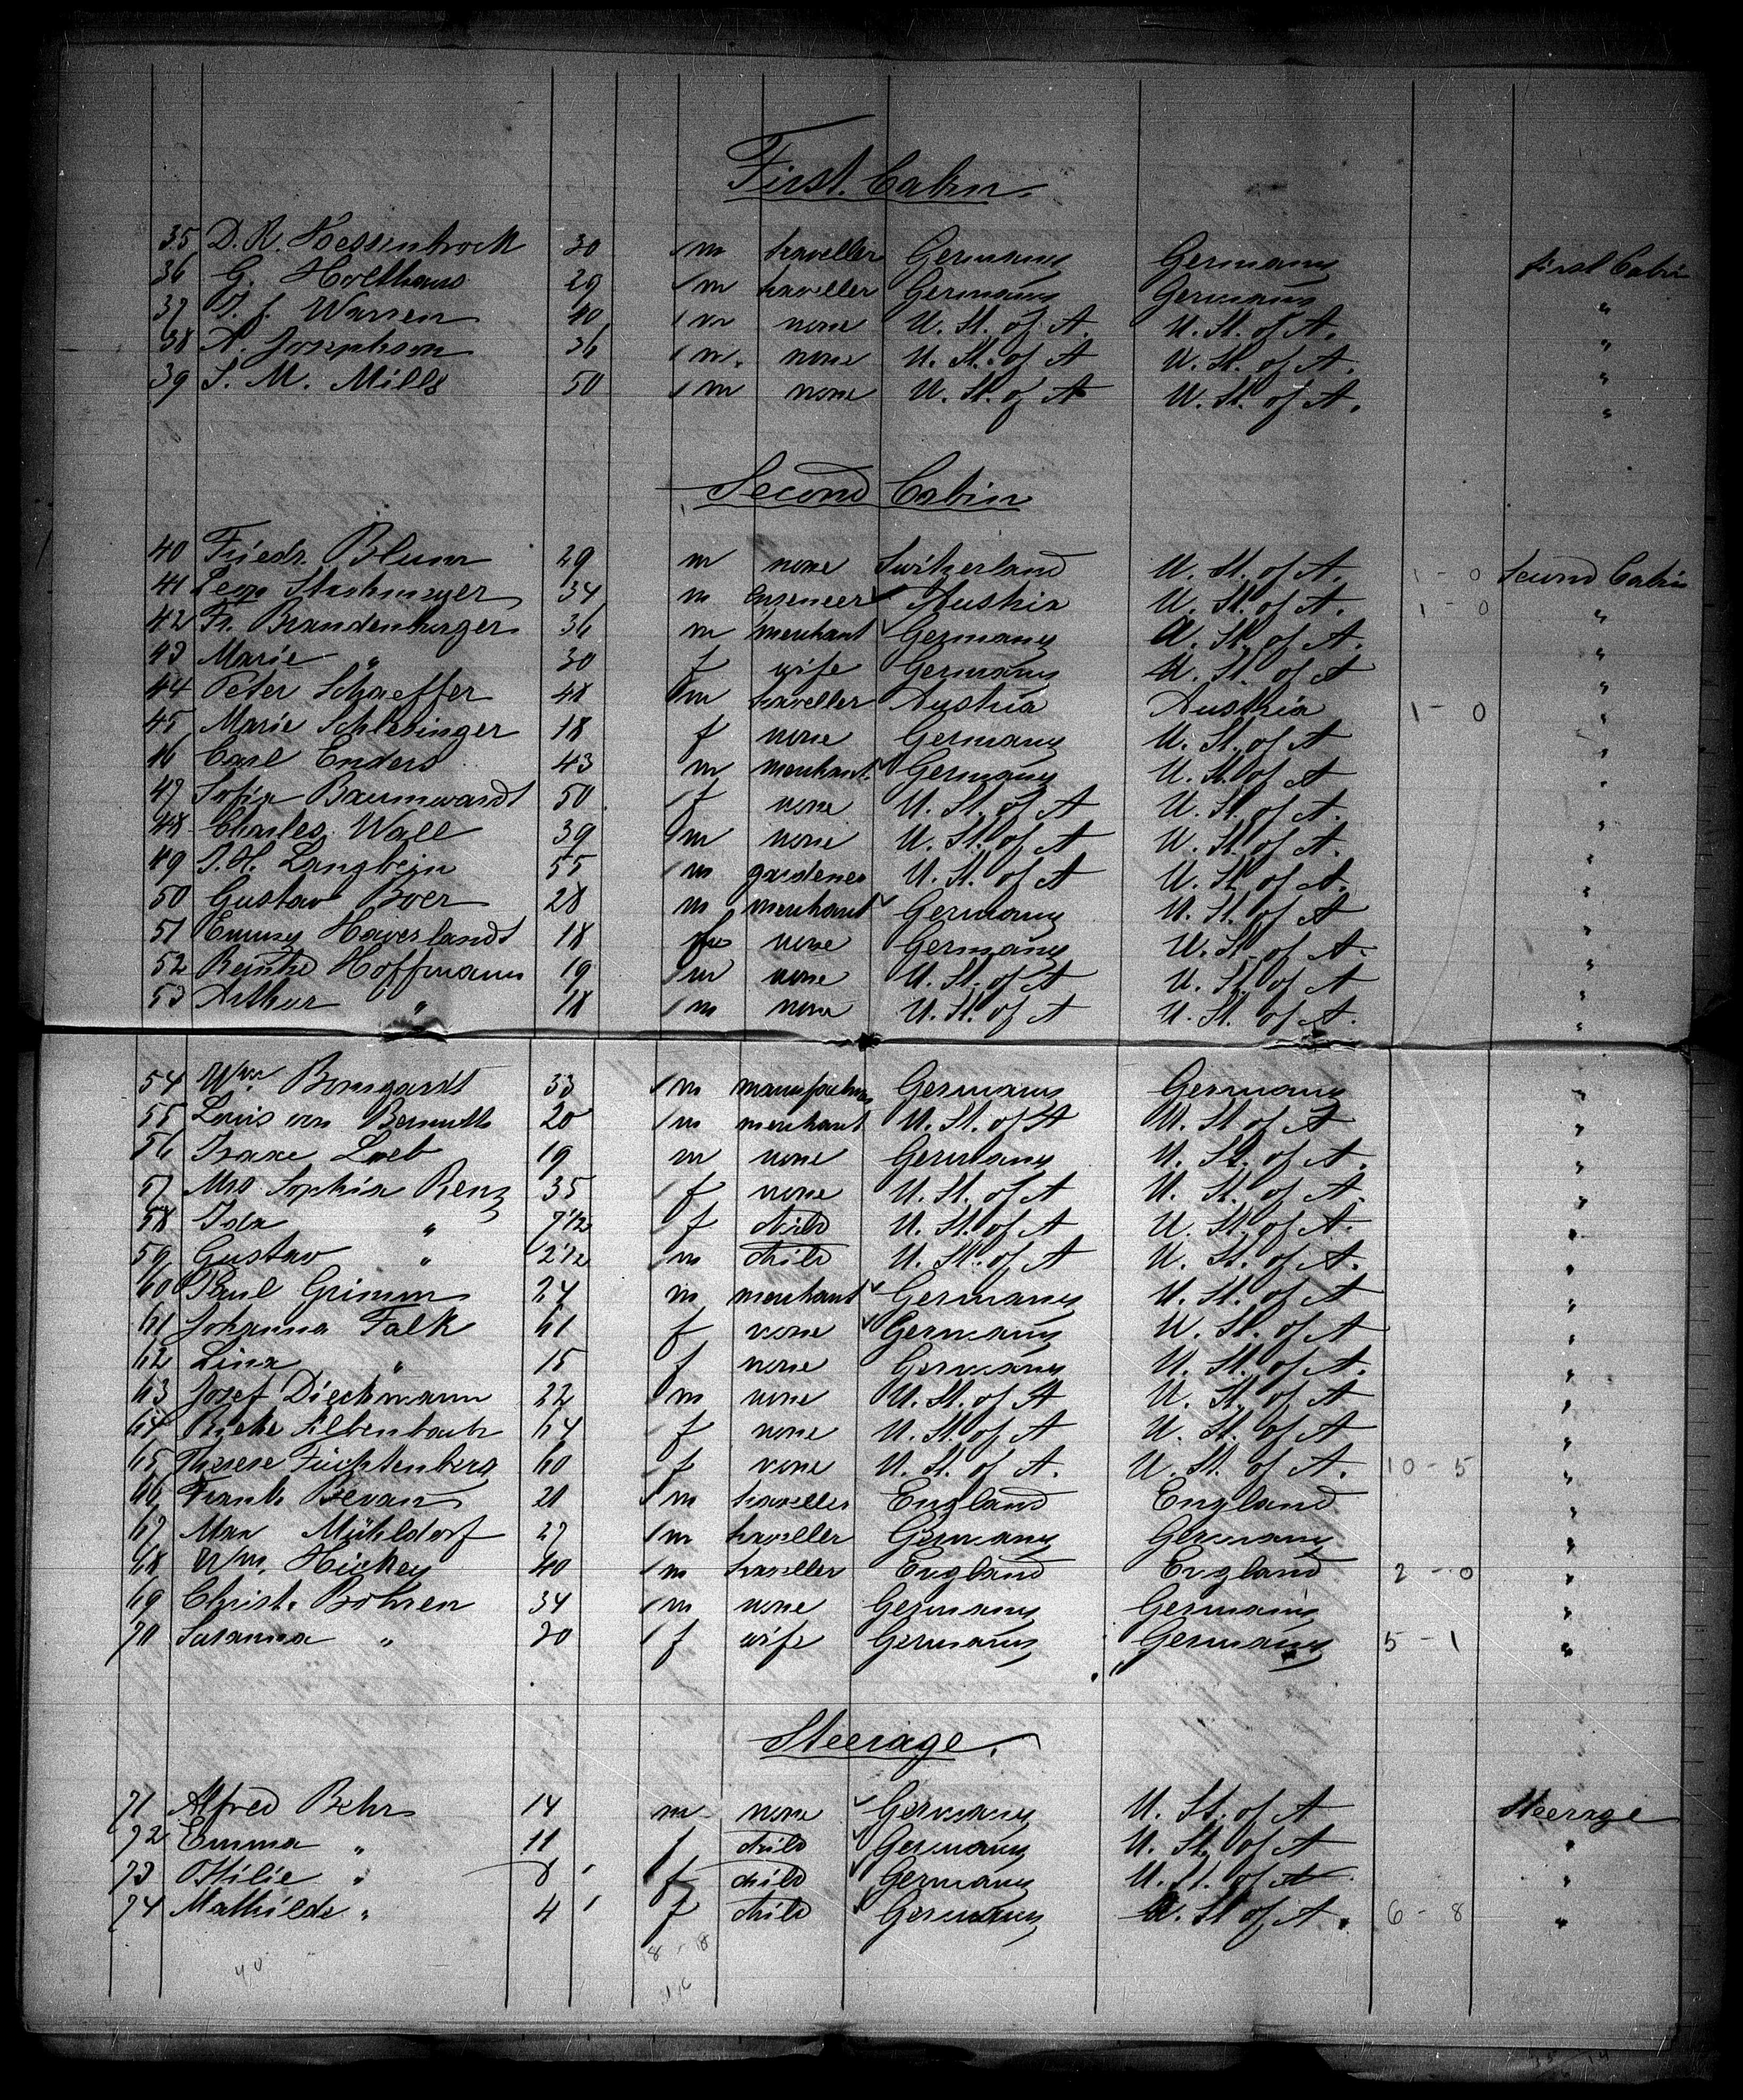 First Cabin.
35 D. R. Hessenbrock 30 m traveller Germany Germany first Cabin
36 G. Holthaus 29 m traveller Germany Germany "
37 Warren 40 m none U. St. of A. U. St. of A. "
38 A. Josephson 36 m. none U. St. of A U. St. of A. "
39 S. M. Mills 50 m none U. St. of A U. St. of A. "
Second Cabin
40 Friedr. Blum 29 m none Switherland U. St. of A. 1 - 0 Second Cabin
41 Leop. 34 m engeneer Austria U. St. of A. 1 - 0 "
42 Fr. Brandenburger 36 m merchant Germany U. St. of A. "
43 Marie " 30 f wife Germany U. St. of A "
44 Peter Schaeffer 48 m traveller Austria Austria 1 - 0 "
45 Marie Schlesinger 18 f none Germany U. St. of A "
46 Carl Enders 43 m merchant Germany U. St. of A "
47 Sofia Baumwardt 50 f none U. St. of A U. St. of A. "
48 Charles Wall 39 m none U. St. of A U. St. of A. "
49 Langbein 55 m gardener U. St. of A U. St. of A. "
50 Gustav Boer 28 m merchant Germany U. St. of A "
51 Emmy Haverlandt 18 f none Germany U. St. of A. "
52 Hoffmann 19 m none U. St. of A U. St. of A "
53 Arthur " 18 m none U. St. of A U. St. of A. "
54 Wm. Bomgardt 33 m Germany Germany "
55 Louis von Bernuth 20 m merchant U. St. of A U. St. of A "
56 Isaac Loeb 19 m none Germany U. St. of A. "
57 Mrs Sophia Renz 35 f none U. St. of A U. St. of A. "
58 Ida " 7 1/2 f child U. St. of A U. St. of A. "
59 Gustav " 2 1/2 m child U. St. of A U. St. of A. "
60 Paul Grimm 24 m merchant Germany U. St. of A "
61 Johanna Falk 61 f none Germany U. St. of A "
62 Lina " 15 f none Germany U. St. of A. "
63 Josef Dieckmann 22 m none U. St. of A U. St. of A "
64 64 f none U. St. of A U. St. of A "
65 Therese Füchtenberg 60 f none U. St. of A. U. St. of A. 10 - 5 "
66 Frank Bevan 21 m traveller England England "
67 Max Mühldorf 27 m traveller Germany Germany "
68 Wm. Hickey 40 m traveller England England 2 - 0 "
69 Christ. Bohren 34 m none Germany Germany "
70 Susanna " 20 f wife Germany Germany 5 - 1 "
Steerage.
71 Alfred Behr 14 m none Germany U. St. of A Steerage
72 Emma " 11 f child Germany U. St. of A "
73 Ottilie " 8 f child Germany U. St. of A "
74 Mathilde " 4 f child Germany U. St. of A. 6 - 8 "
18 - 18
40